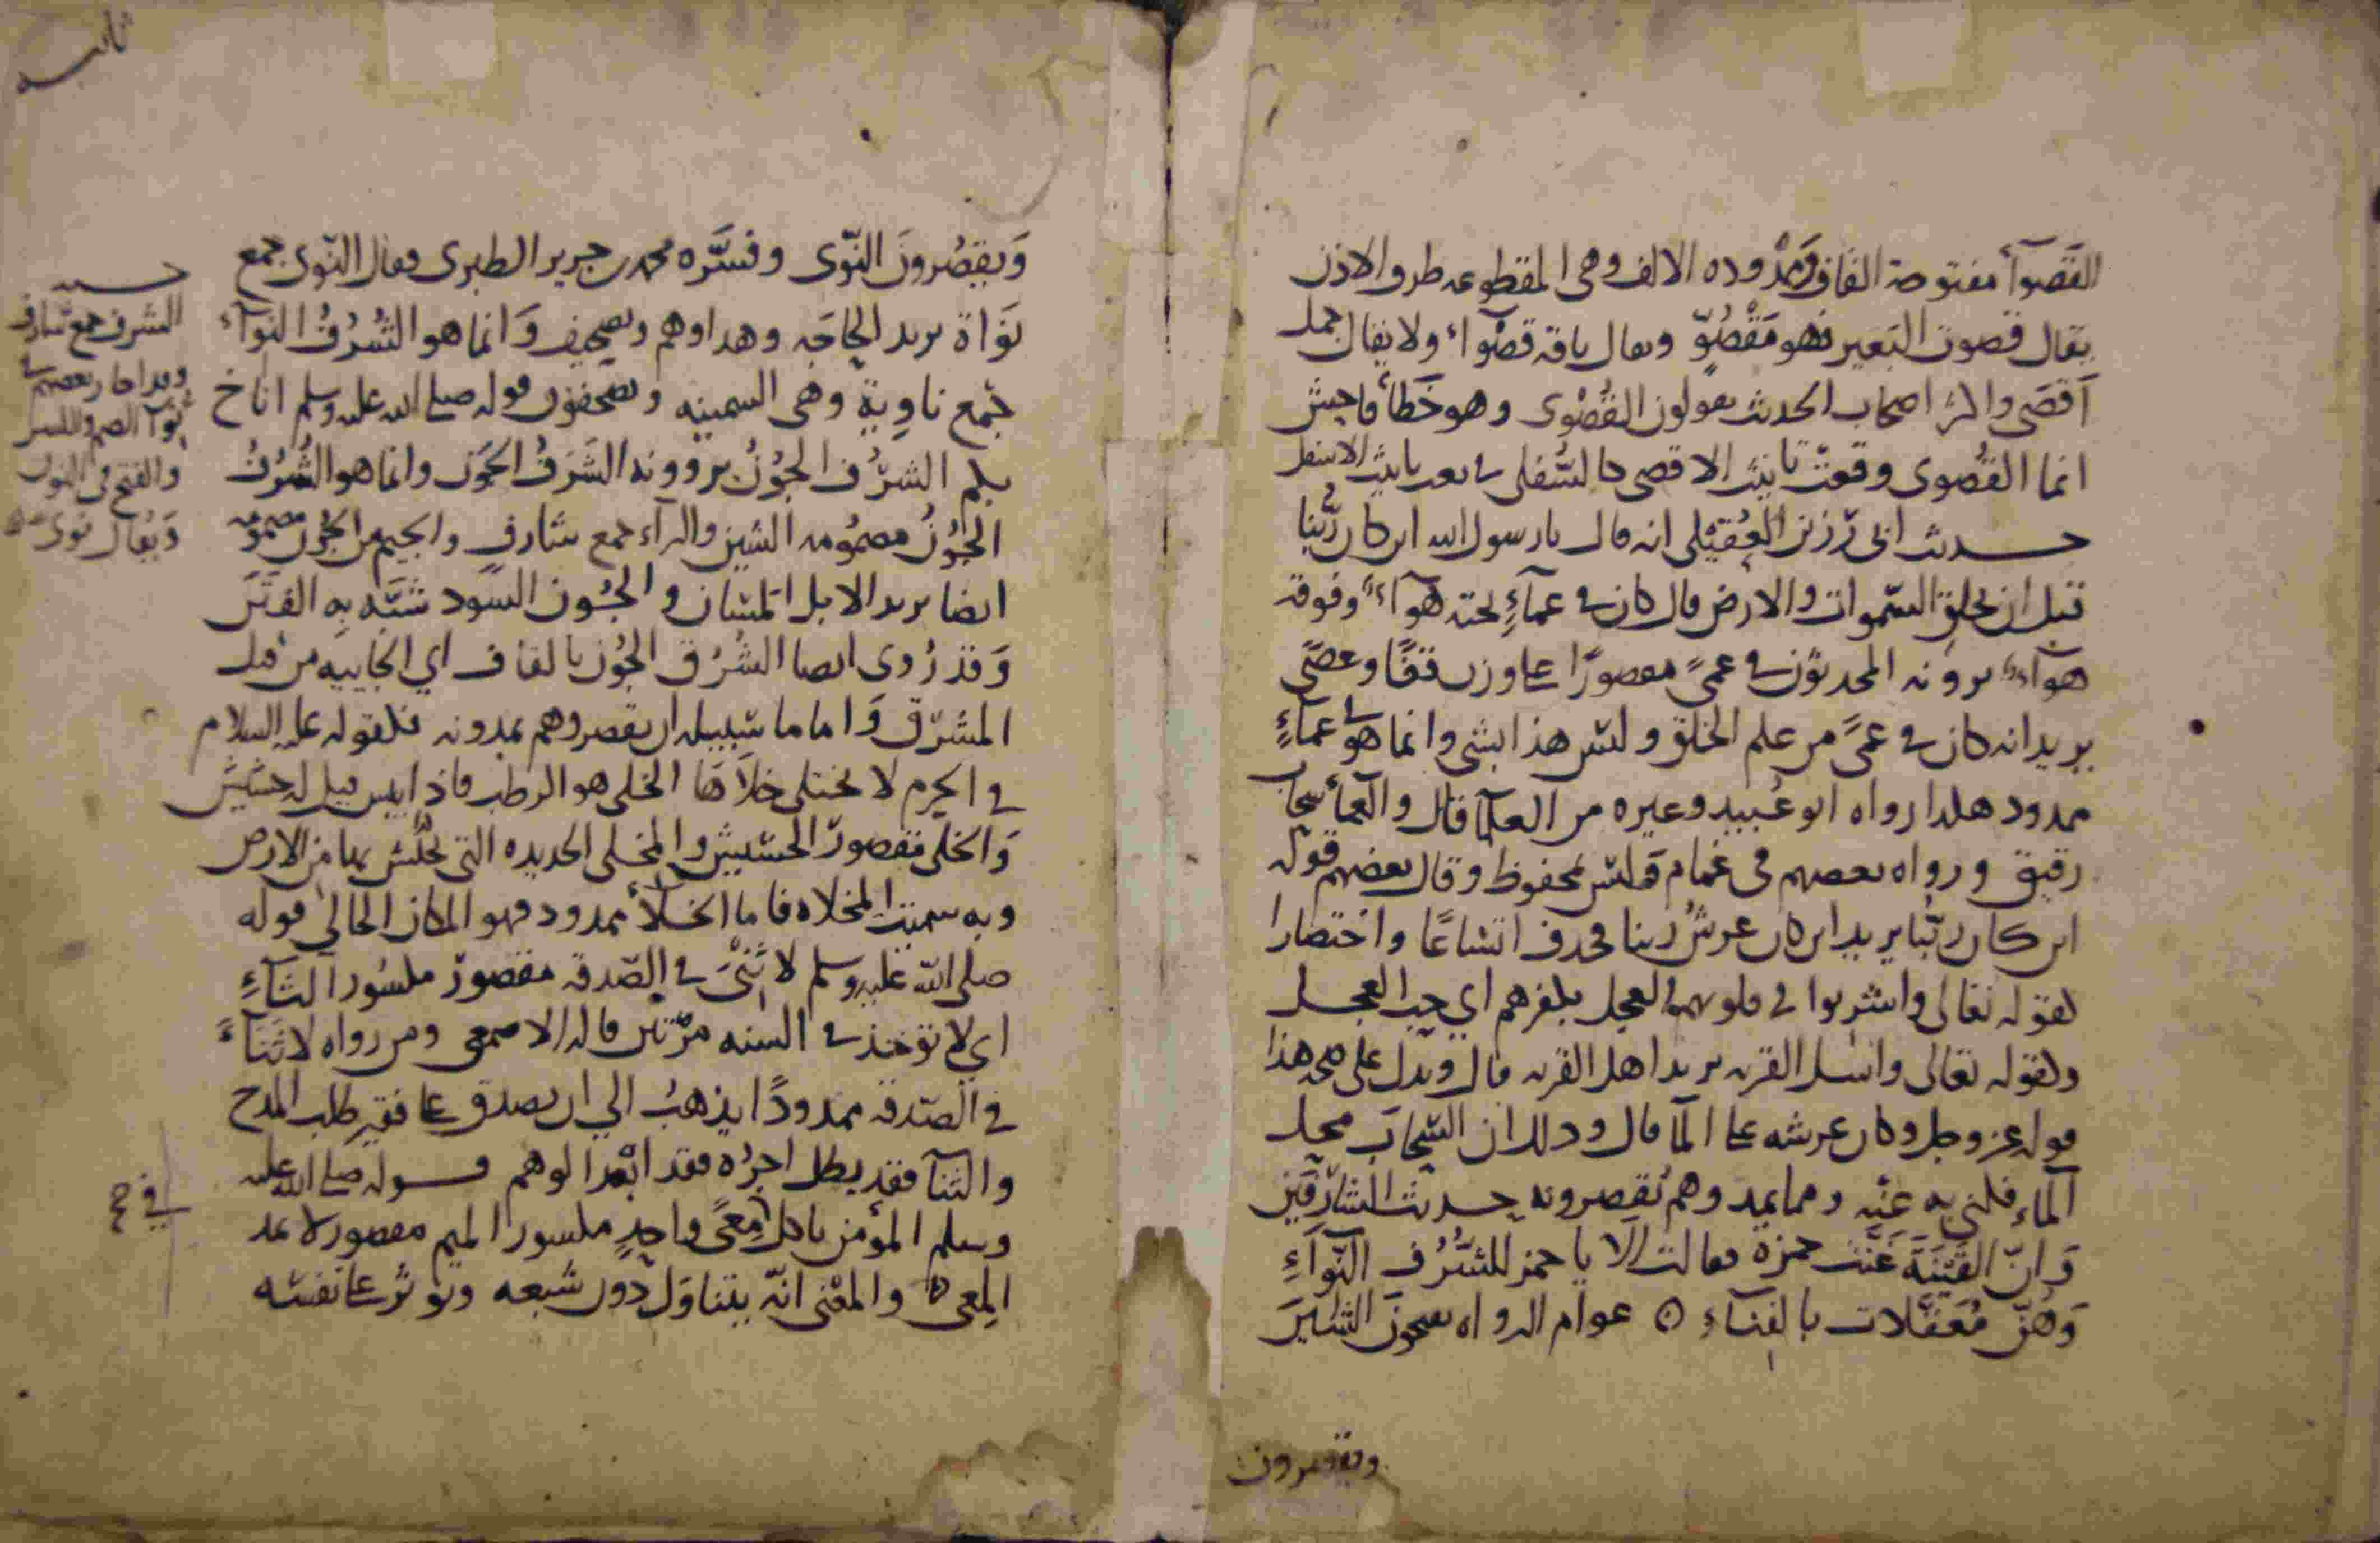 القَصْوآءُ مفتوحة القاف وَممْدوده الالف وهى المقطوعه طرف الاذن
يقال قصوت البَعير فهو مَقْصُوّ ويقال ناقة قصْوآء ولا يقال جمل
أقصَى واكثر اصحاب الحديث يقولون القُصْوى وهو خَطَأ فاحِش
انما القُصوى وقعت تانيث الاقصى كالسُّفلى في نعت تانيث الاسفل
حديث ابى رَزين العُقَيْلى انه قال يا رسول الله اين كان ربُّنا
قبل ان يخلق السَّموات والارض قال كان في عمآءٍ تحته هوآءٌ وفوقه
هوآءٌ يروونه المحدثون في عمىً مقصورًا على وزن قفًا وعصًى
يريد انه كان في عمىً من علم الخلق وليس هذا بشى وانما هو في عمآءٍ
ممدود هكذا رواه ابو عُبيد وغيره من العلمآ قال والعمآء سحاب
رقيق ورواه بعضهم فى غمام وَليس بمحفوظ وقال بعضهم قوله
اين كان ربّنا يريد اين كان عرشُ ربنا فحذف اتساعًا واختصارا
كقوله تعالى واشربوا في قلوبهم العجل بكفرهم اي حب العجل
وكقوله تعالى واسئل القرية يريد اهل القرية قال ويدل على صحة هذا
قوله عز وجل وكان عرشه على المآ قال وذلك ان السَّحابَ محل
المآء فكنى به عنه ومما يمد وهم يُقصرونه حديث الشارفَين
وَانّ القَيْنَةَ غنّت حمزة فقالت أَلا يا حمز للشُّرُف النّوآءِ
وَهُنّ مُعَقَّلات بالفنآءِ ⊙ عوام الرواه يفتحون الشين
ويقصرون
وَيقصُرونَ النّوى وفسَّره محمد بن جرير الطبرى فقال النّوى جمع
نَوَاة يريد الحاجَه وهذا وهم وتصحيف وَانما هو الشُّرُفُ النوآء
جمْع ناوِية وهى السمينه ويصحفون قوله صلى الله عليه وسلم اناخ
بكم الشُّرُف الجُوْنُ يروونه الشَرَفُ الجَوْن وانما هو الشُّرُفُ
الجُوْنُ مضمُومه الشين والرآء جمع شارف والجيم من الجُون مضمومه
ايضا يريد الابل المسَانّ والجُون السّود شبَّه بِهِ الفتَنَ
وَقد رُوى ايضا الشُرُق الجُوْن بالقاف اي الجاييه من قبل
المشرق وَاما ما سَبيله ان يقصر وهم يمدونه فكقوله عليه السلام
في الحرم لا يختلى خلاَهَا الخلى هو الرطب فاذا يبس قيل له حشيش
وَالخلى مقصورٌ الحشيش والمخلى الحديده التي يُحتشّ بها من الارض
وبه سميت المخلاه فاما الخلآء ممدود فهو المكان الخالي قوله
صلى الله عليه وسلم لا ثِنَى في الصّدقه مقصورٌ مكسُور الثآءِ
اي لا تؤخذ في السنه مرّتين قاله الاصمعى ومن رواه لا ثنآءَ
في الصّدقه ممدودًا يذهبُ الي ان من تصدق على فقير طلب المدح
والثنآ فقد بطل اجرُه فقد ابْعد الوهم قوله صلى الله عليه
وسلم المؤمن ياكل في مِعىً واحِدٍ مكسور الميم مقصور لا يمد
المِعى والمعْنى انّه يتناوَل دُون شبعه ويؤثر على نفسه
الشرف جمع شارف
وقد اجاز بعضهم في
نوآ الضم والكسر
والفتح فى النون
وَيُقال نوى